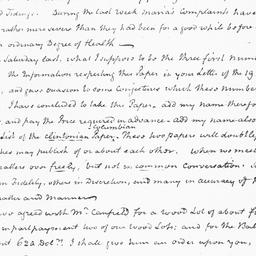 nd Tidings. During the last week Maria's Complaints have
rather more severe than they had been for a good while before
n ordinary Degree of Health —
Saturday last, what I suppose to be the three first Num
the Information respecting this Paper in your Letter of the 19
, and gave occasion to some Conjecture which these Number
I have concluded to take this Paper. Add my name therefo
, and pay the Price required in advance — add my name also
Columbian
List of the Clintonian Paper. These two papers will doubtly,
they may publish of or about each other. When we meet
matters over freely, but not in common Conversation.
in Fidelity, others in Discretion, and many in accuracy of
matter and Manner —
have agreed with Mr. Canfield for a Wood Lot of about f
in part payment two of our Wood Lots; and for the Bal
nt 622 Dolrs. I shall give him an order upon you,